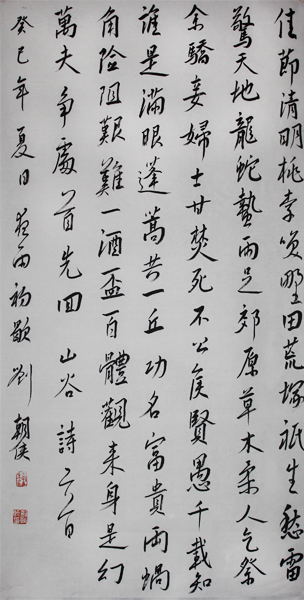 佳節清明桃李笑野田荒塚祇生愁雷
驚天地龍蛇蟄雨足郊原草木柔人乞祭
余驕妾婦士甘焚死不公侯賢愚千載知
誰是滿眼蓬蒿共一丘功名富貴兩蝸
角險阻艱難一酒盃百體觀來身是幻
萬夫爭處首先回 山谷詩二首
癸巳年夏日夜雨初歇 劉朝侯